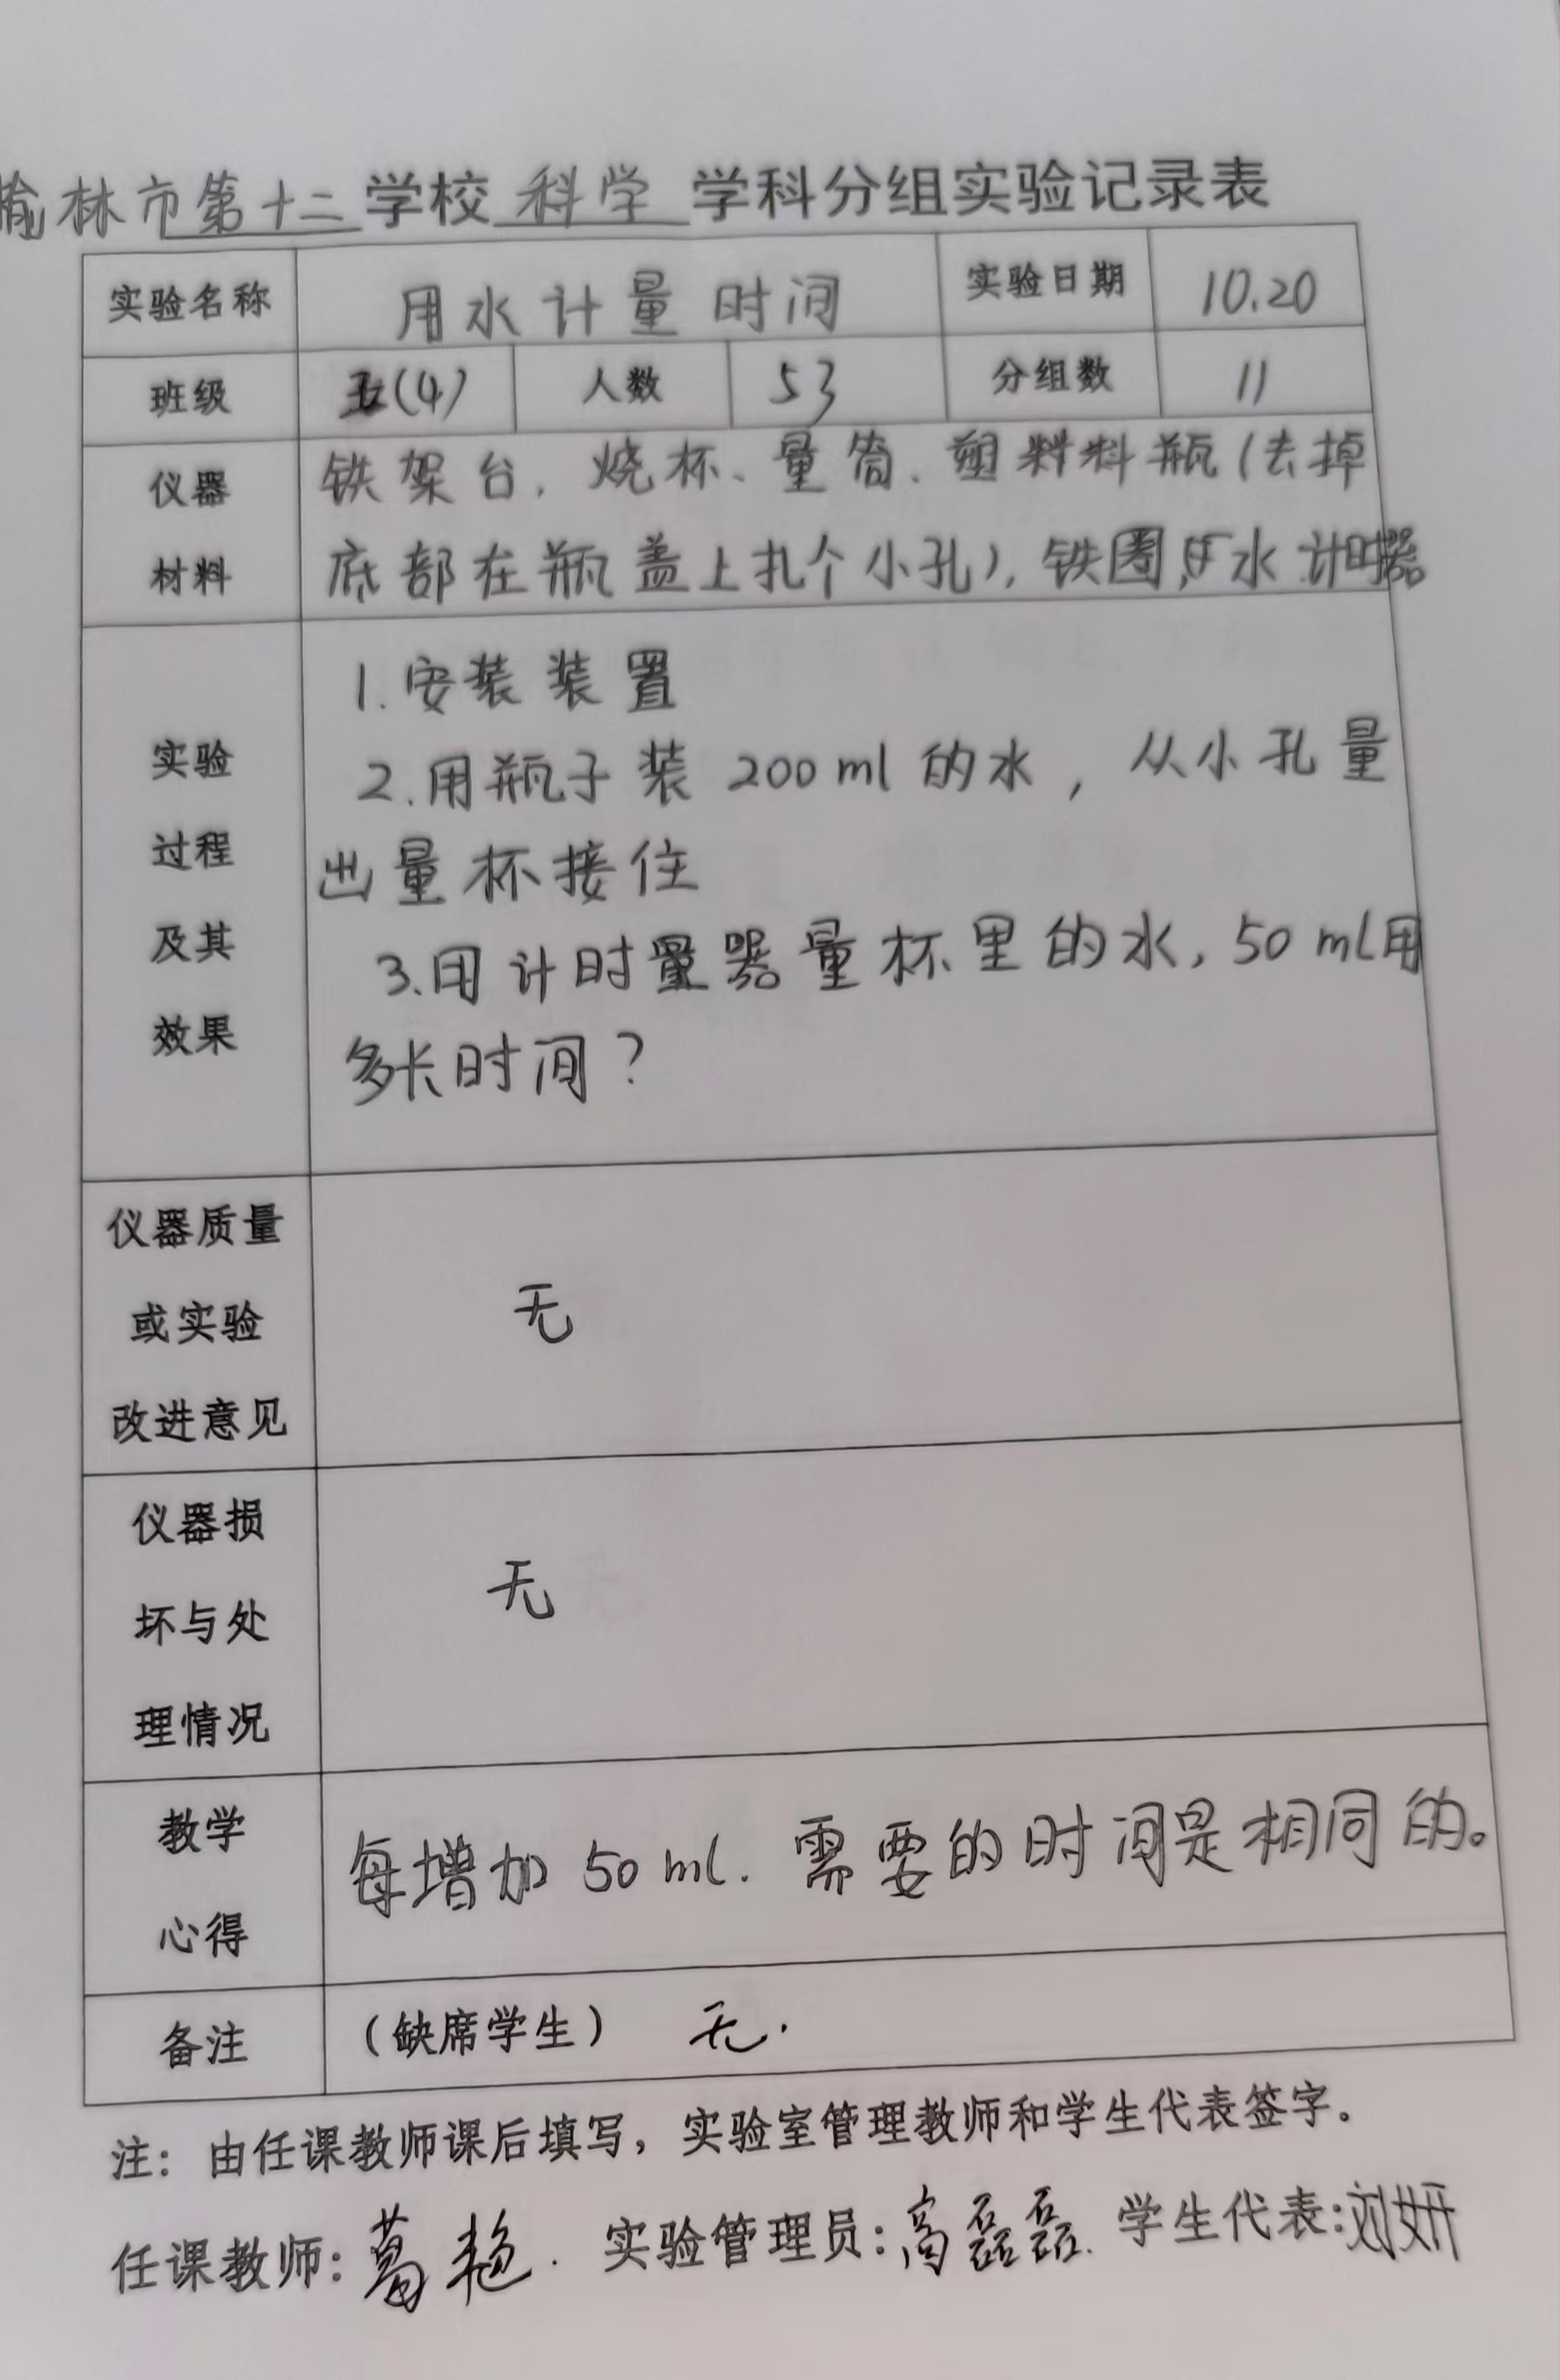 榆林市第十二学校 科学 学科分组实验记录表
实验名称 用水计量时间 实验日期 10.20
班级 五(4) 人数 53 分组数 11
仪器 铁架台、烧杯、量筒、塑料料瓶(去掉
材料 底部在瓶盖上扎个小孔),铁圈,水 计时器
1.安装装置
实验 2.用瓶子装 200ml 的水,从小孔量
过程 出量杯接住
及其 3.用计时量器量杯里的水,50ml用
效果 多长时间?
仪器质量
或实验 无
改进意见
仪器损
坏与处 无
理情况
教学 每增加50ml.需要的时间是相同的。
心得
备注 (缺席学生) 无.
注:由任课教师课后填写,实验室管理教师和学生代表签字。
任课教师:葛艳. 实验管理员:高磊磊. 学生代表:刘妍